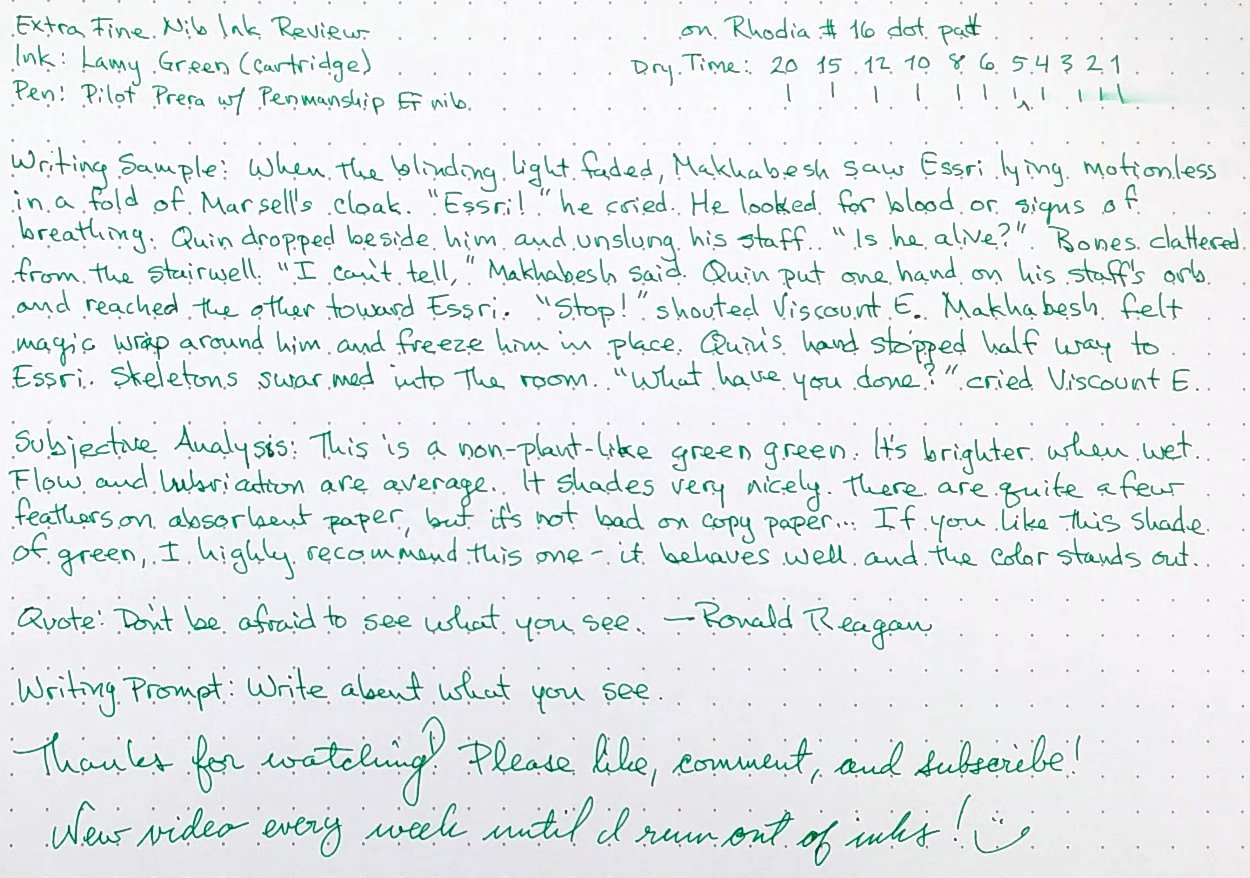 Extra Fine Nib Ink Review
on Rhodia # 16 dot pad
Ink: Lamy Green (cartridge)
Dry Time: 20 15 12 10 8 6 5 4 3 2 1
Pen: Pilot Prera w/ Penmanship EF nib.
Writing Sample: When the blinding light faded, Makhabesh saw Essri lying motionless
in a fold of Marsell's cloak. "Essri!" he cried. He looked for blood or signs of
breathing. Quin dropped beside him and unslung his staff. "Is he alive?" Bones clattered
from the stairwell. "I can't tell," Makhabesh said. Quin put one hand on his staff's orb
and reached the other toward Essri. "Stop!" shouted Viscount E. Makhabesh felt
magic wrap around him and freeze him in place. Quin's hand stopped half way to
Essri. Skeletons swarmed into the room. "What have you done?" cried Viscount E.
Subjective Analysis: This is a non-plant-like green green. It's brighter when wet.
Flow and lubrication are average. It shades very nicely. There are quite a few
feathers on absorbent paper, but it's not bad on copy paper... If you like this shade
of green, I highly recommend this one - it behaves well and the color stands out.
Quote: Don't be afraid to see what you see. —Ronald Reagan
Writing Prompt: Write about what you see.
Thanks for watching! Please like, comment, and subscribe!
New video every week until I run out of inks!